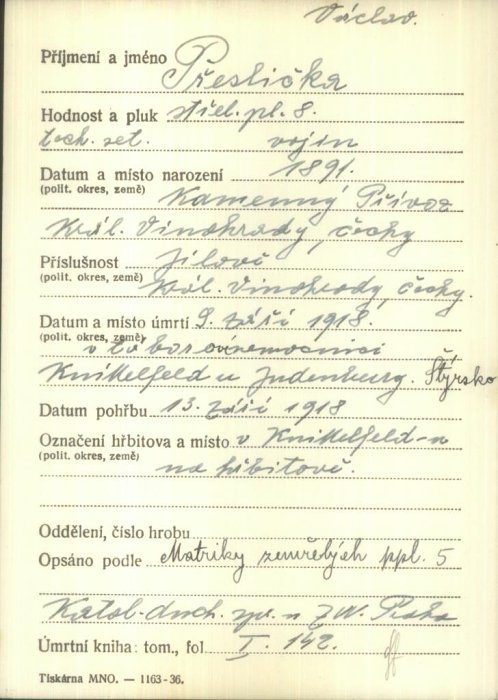 Václav.
Příjmení a jméno Přeslička
Hodnost a pluk střel. pl. 8.
tech. set. vojín
Datum a místo narození 1891.
(polit. okres, země) Kamenný Přívoz
Král. Vinohrady, Čechy
Příslušnost Jílové
(polit. okres, země) Král. Vinohrady, Čechy.
Datum a místo úmrtí 9. září 1918.
(polit. okres, země) v táborové nemocnici
Knittelfeld u Judenburg. Štýrsko
Datum pohřbu 13. září 1918
Označení hřbitova a místo v Knittelfeld-u
(polit. okres, země) na hřbitově.
Oddělení, číslo hrobu
Opsáno podle Matriky zemřelých ppl. 5
Katol. duch. spr. u ZVV. Praha
Úmrtní kniha: tom., fol. I. 142.
Tiskárna MNO. — 1163-36.